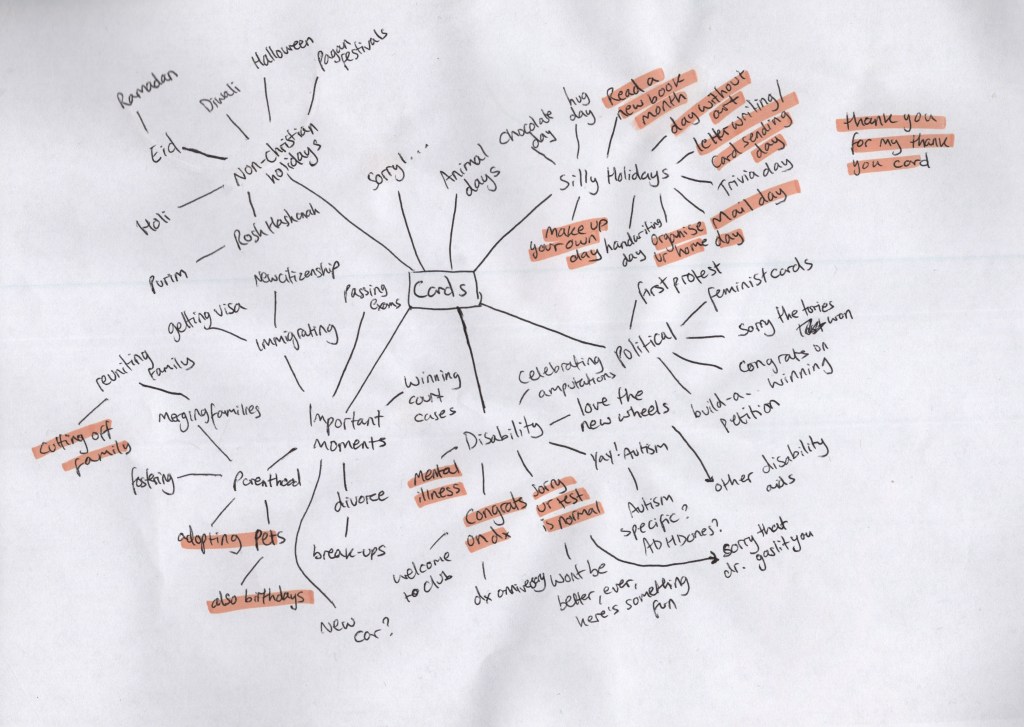 Ramadan
Eid
Diwali
Halloween
Pagan
festivals
Non-Christian
holidays
Holi
Rosh Hashanah
Purim
Sorry!...
Animal
days
Chocolate
day
hug
day
Read a
new book
month
day without
art
letter writing/
card sending
day
Trivia day
Mail day
Silly Holidays
Make up
your own
day
handwriting
day
organise
ur home day
thank you
for my thank
you card
Cards
Passing
exams
New citizenship
getting visa
Immigrating
reuniting
family
merging families
cutting off
family
fostering
Parenthood
adopting pets
also birthdays
Important
moments
winning
court
cases
divorce
break-ups
New
car?
Disability
Celebrating
amputations
love the
new wheels
Yay! Autism
Autism
specific?
ADHD ones?
other disability
aids
Mental
illness
Congrats
on dx
welcome
to club
dx anniversary
Sorry
ur test
is normal
Wont be
better, ever,
here's something
fun
sorry that
dr. gaslit you
Political
first protest
feminist cards
sorry the tories
won
congrats on
winning
build-a..
petition